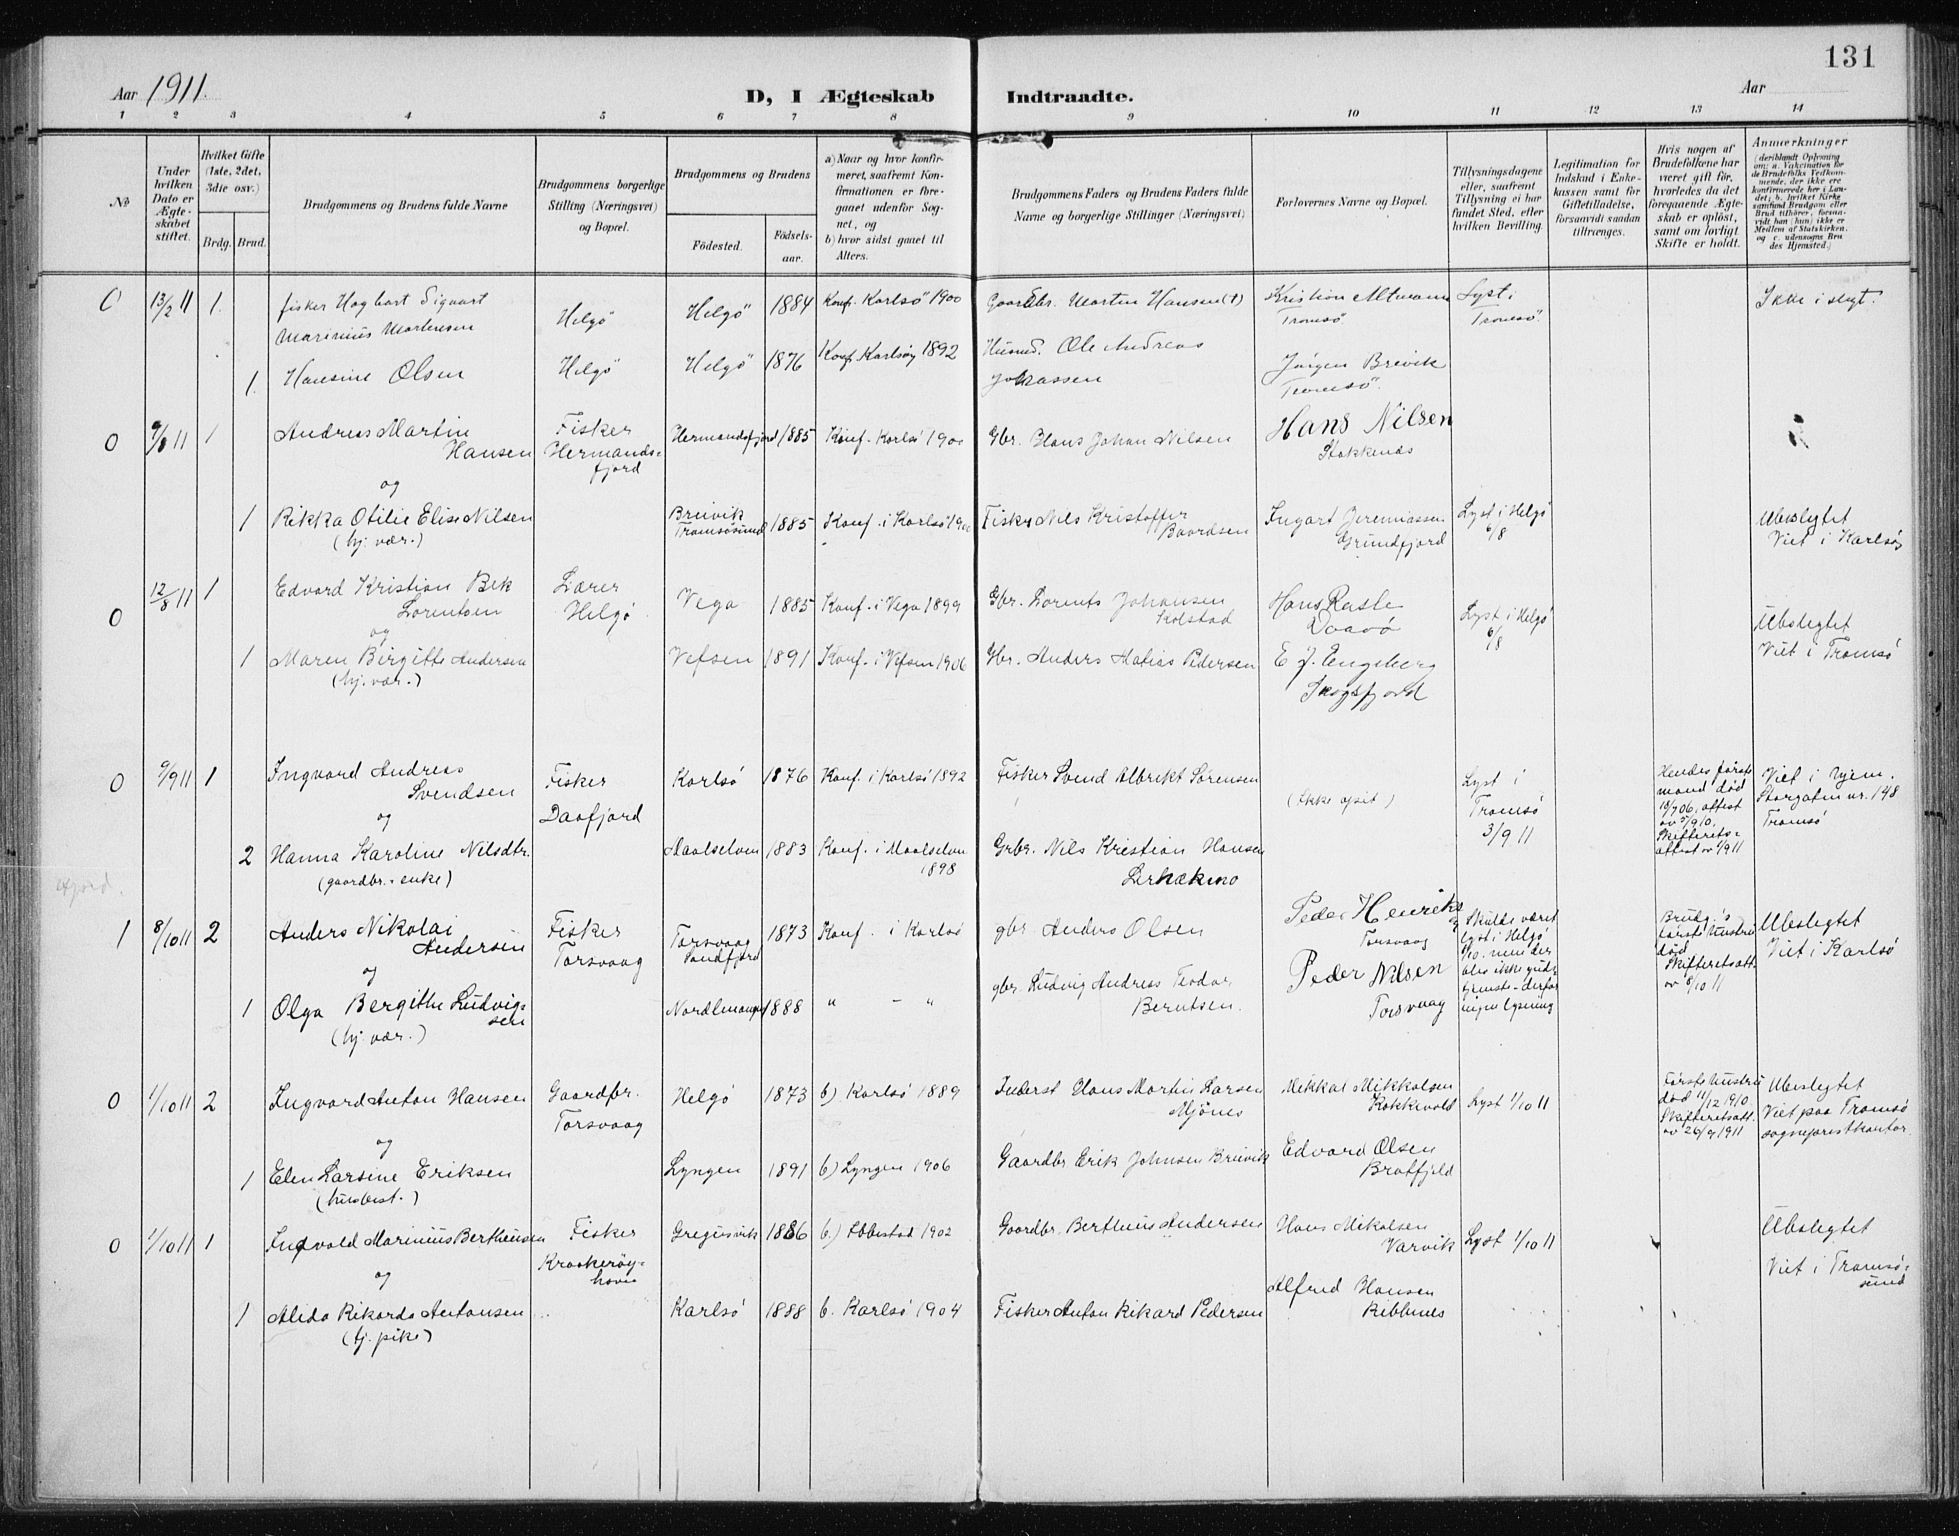 131
Aar 1911.
D, I Ægteskab Indtraadte.
Aar
1 2 3 4 5 6 7 8 9 10 11 12 13 14
No
Under hvilken Dato er Ægteskabet stiftet.
Hvilket Gifte (1ste, 2det, 3die osv.)
Brdg. Brud.
Brudgommens og Brudens fulde Navne
Brudgommens borgerlige Stilling (Næringsvei) og Bopæl.
Brudgommens og Brudens
Födested.
Födselsaar.
a) Naar og hvor konfirmeret, saafremt Konfirmationen er foregaaet udenfor Sognet, og
b) hvor sidst gaaet til Alters.
Brudgommens Faders og Brudens Faders fulde Navne og borgerlige Stillinger (Næringsvei)
Forlovernes Navne og Bopæl.
Tillysningsdagene eller, saafremt Tillysning ei har fundet Sted, efter hvilken Bevilling.
Legitimation for Indskud i Enkekassen samt for Giftetilladelse, forsaavidt saadan tiltrænges.
Hvis nogen af Brudefolkene har været gift før, hvorledes da det foregaaende Ægteskab er oplöst, samt om lovligt Skifte er holdt.
Anmerkninger
0 13/2 11 1. fisker Hagbart Sigvart Helgö Helgö 1884 Konf. Karlsö 1900 Gaardbr. Morten Hansen (†) Kristian Altmann Lyst i Ikke i slegt.
Marinius Mortensen Tromsö Tromsö.
1. Hansine Olsen Helgö Helgö 1876 Konf. Karlsöy 1892 Husmd. Ole Andreas Jörgen Breivik
Johassen Tromsö
0 9/8 11 1 Andreas Martin Fisker Hermandsfjord 1885 Konf. Karlsö 190 Gbr. Hans Johan Nilsen Hans Nilsen
Hansen Hermands- Stakkenes
og fjord
1 Rikka Otilie Elise Nilsen Breivik 1885 Konf. i Karlsö Fisker Nils Kristoffer Ingart Jeremiassen Lyst i Helgö Ubeslegtet
(hj. vær.) Tromsösund Baardsen Grundfjord 6/8 Viet i Karlsö
0 12/8 11 1 Edvard Kristian Bek Lærer Vega 1885 Konf. i Vega 1899 Gbr. Lorents Johansen Hans Lyst i Helgö Ubeslegtet
Lorentsen Helgö Kolstad 6/8 Viet i Tromsö
og
1 Maren Birgitte Andersen Vefsen 1891 Konf. i Vefsen 1906 Gbr. Anders Matias Pedersen E. J. Engeberg
(hj. vær.) Skogsfjord
0 9/9 11 1 Ingvard Andreas Fisker Karlsö 1876 Konf. i Karlsö 1892 Fisker Svend Albrikt Sörensen Lyst i Hendes förste Viet i hjem.
Svendsen Daafjord (Ikke opsit) Tromsö mand död Storgaten nr. 148
og 3/9 11 18/7 06, attest Tromsö
av 7/9 10,
Skifterets-
attest av 1/9 11
2 Hanna Karoline Nilsdtr. Maalselven 1883 Konf. i Maalselven Grbr. Nils Kristian Hansen
(gaardbr. enke) 1898
1 8/10 11 2 Anders Nikolai Fisker Torsvaag 1873 Konf. i Karlsö gbr. Anders Olsen Peder Henriks Skulde været Brudg.'s Ubeslegtet
Andersen Torsvaag Sandfjord Torsvaag lyst i Helgö förste hustru Viet i Karlsö
og 1/10. men der död
blev ikke guds- Skifteretsatt.
tjeneste - derfor av 8/10 11
ingen lysning
1 Olga Bergithe Ludvig- 1888 " - " gbr. Ludvig Andreas Teodor Peder Nilsen
sen Berntsen. Torsvaag
(hj. vær.)
0 1/10 11 2 Ingvard Anton Hansen Gaardbr. Helgö 1873 b) Karlsö 1889 Inderst Hans Martin Larsen Mikkal Mikkalsen Lyst 1/10 11 Förste hustru Ubeslegtet
Torsvaag Mjönes Kokkevold död 11/12 1910 Viet paa Tromsö
og Skifteretsatt. sogneprestkontor
av 26/9 1911
1 Elen Larsine Eriksen Lyngen 1891 b) Lyngen 1906 Gaardbr Erik Johnsen Breivik Edvard Olsen
(husbest.)
0 1/10 11 1 Ingvald Marinius Bertheusen Fisker Gregusvik 1886 b.) Ibbestad 1902 Gaardbr. Bertheus Andersen Hans Mikalsen Lyst 1/10 11 Ubeslegtet
og Kraakeröy- Varvik Viet i Tromsö-
havn sund
1 Alida Rikarda Antonsen Karlsö 1888 b. Karlsö 1904 Fisker Anton Rikard Pedersen Alfred Hansen
(tj. pike) Ribbnes